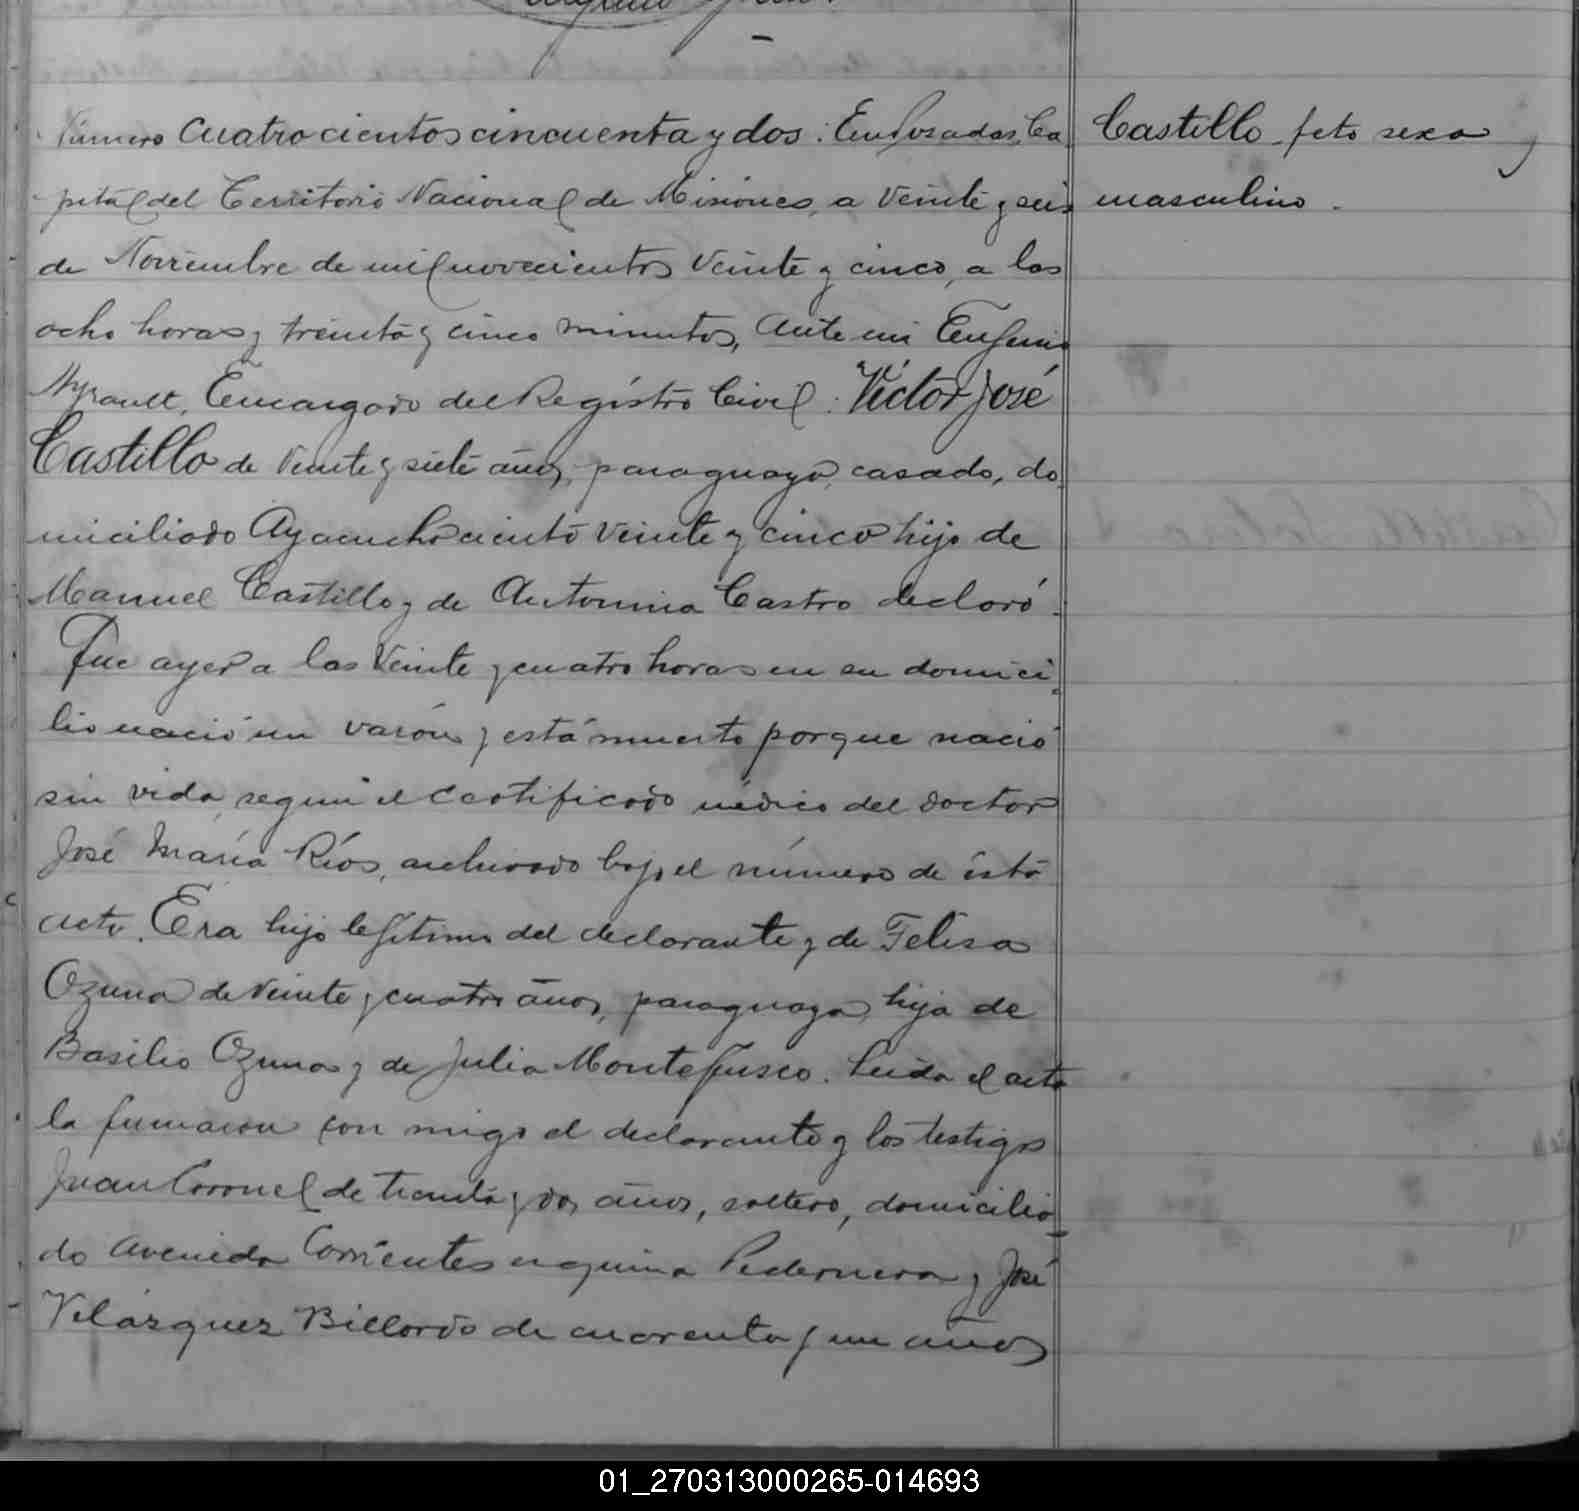 Número Cuatrocientos cincuenta y dos: En Posadas, Ca
pital del Territorio Nacional de Misiones, a veinte y seis
de Noviembre de mil novecientos veinte y cinco, a las
ocho horas y treinta y cinco minutos, ante mi Eugenio
Encargado del Registro Civil: Víctor José
Castillo de veinte y siete años, paraguayo, casado, do
miciliado Ayacucho ciento veinte y cinco hijo de
Manuel Castillo y de Antonina Castro declaró:
Que ayer a las veinte y cuatro horas en su domici
lio nació un varón y está muerto porque nació
sin vida, según el certificado médico del doctor
José María Ríos, archivado bajo el número de ésta
acta. Era hijo legítimo del declarante y de Felisa
Ozuna de veinte y cuatro años, paraguaya, hija de
Basilio Ozuna y de Julia Montefusco. Leida el acta
la firmaron con migo el declarante y los testigos
Juan Coronel de treinta y dos años, soltero, domicilia-
do Avenida Corrientes esquina Pedernera y José
Velázquez Billordo de cuarenta y un años
Castillo, feto sexo
masculino.
01_270313000265-014693